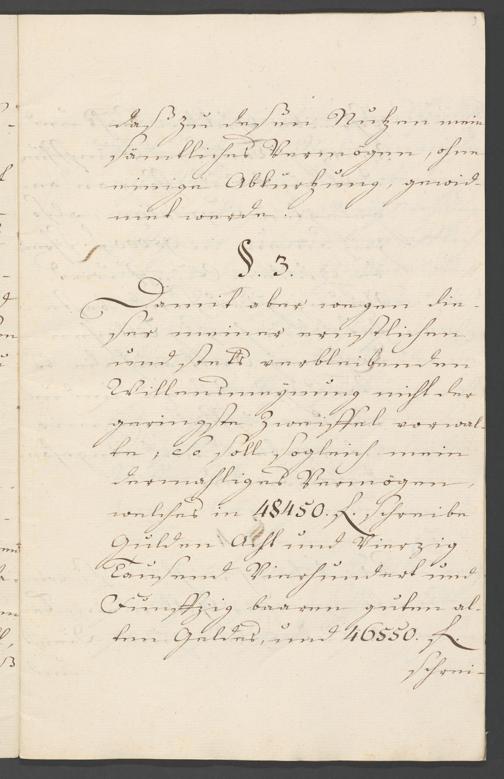 daß zu dessen Nutzen mein
sämtliches Vermögen, ohne
einige Abkürtzung, gewid-
met werde.
§. 3.
Damit aber wegen die-
ser meiner ernstlichen
und stets verbleibenden
Willensmeynung nicht der
geringste Zweiffel vorwal-
te, So soll sogleich mein
dermahliges Vermögen,
welches in 48450. f. schreibe
Gulden Acht und Vierzig
Tausend Vierhundert und
Funffzig baaren guten al-
ten Geldes, und 46550. f.
schrei-